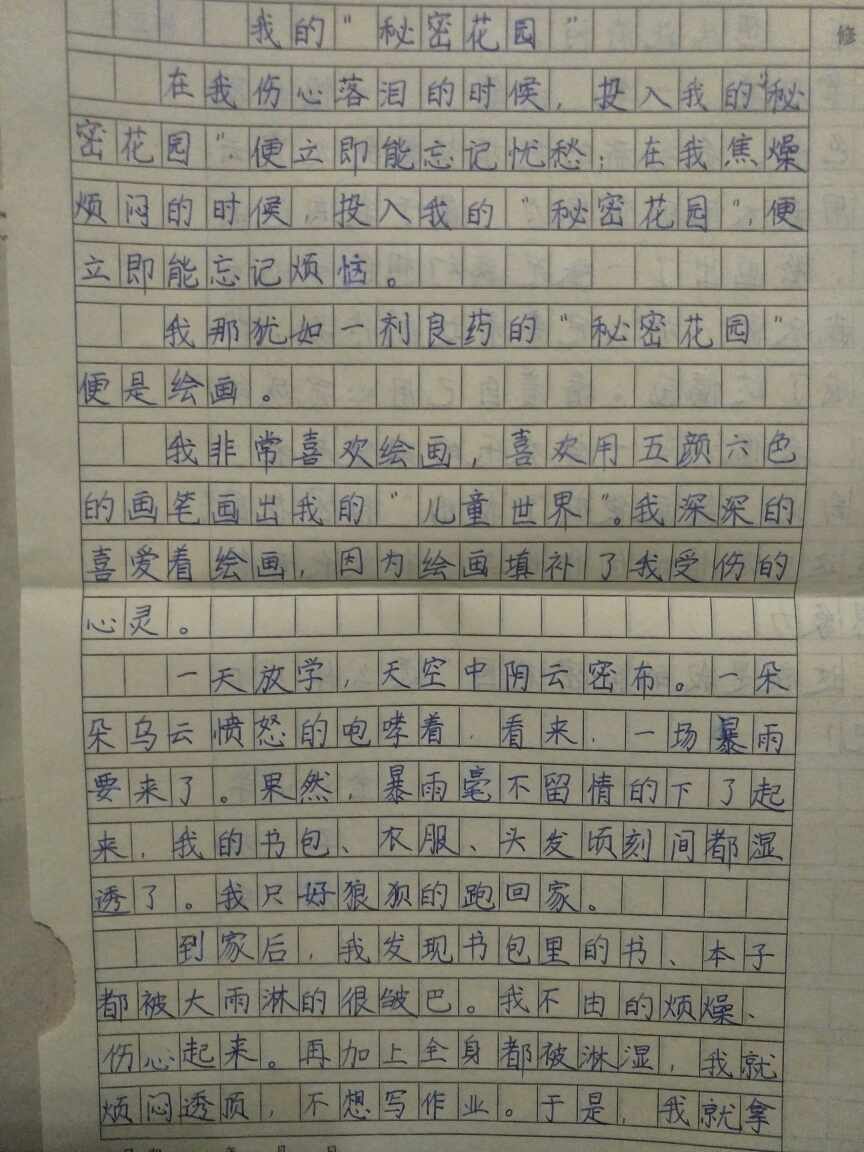 我的“秘密花园”
修
在我伤心落泪的时候，投入我的“秘
密花园”，便立即能忘记忧愁；在我焦燥
烦闷的时候，投入我的“秘密花园”，便
立即能忘记烦恼。
我那犹如一剂良药的“秘密花园”
便是绘画。
我非常喜欢绘画，喜欢用五颜六色
的画笔画出我的“儿童世界”。我深深的
喜爱着绘画，因为绘画填补了我受伤的
心灵。
一天放学，天空中阴云密布。一朵
朵乌云愤怒的咆哮着，看来，一场暴雨
要来了。果然，暴雨毫不留情的下了起
来，我的书包、衣服、头发顷刻间都湿
透了。我只好狼狈的跑回家。
到家后，我发现书包里的书、本子
都被大雨淋的很皱巴。我不由的烦燥、
伤心起来。再加上全身都被淋湿，我就
烦闷透顶，不想写作业。于是，我就拿